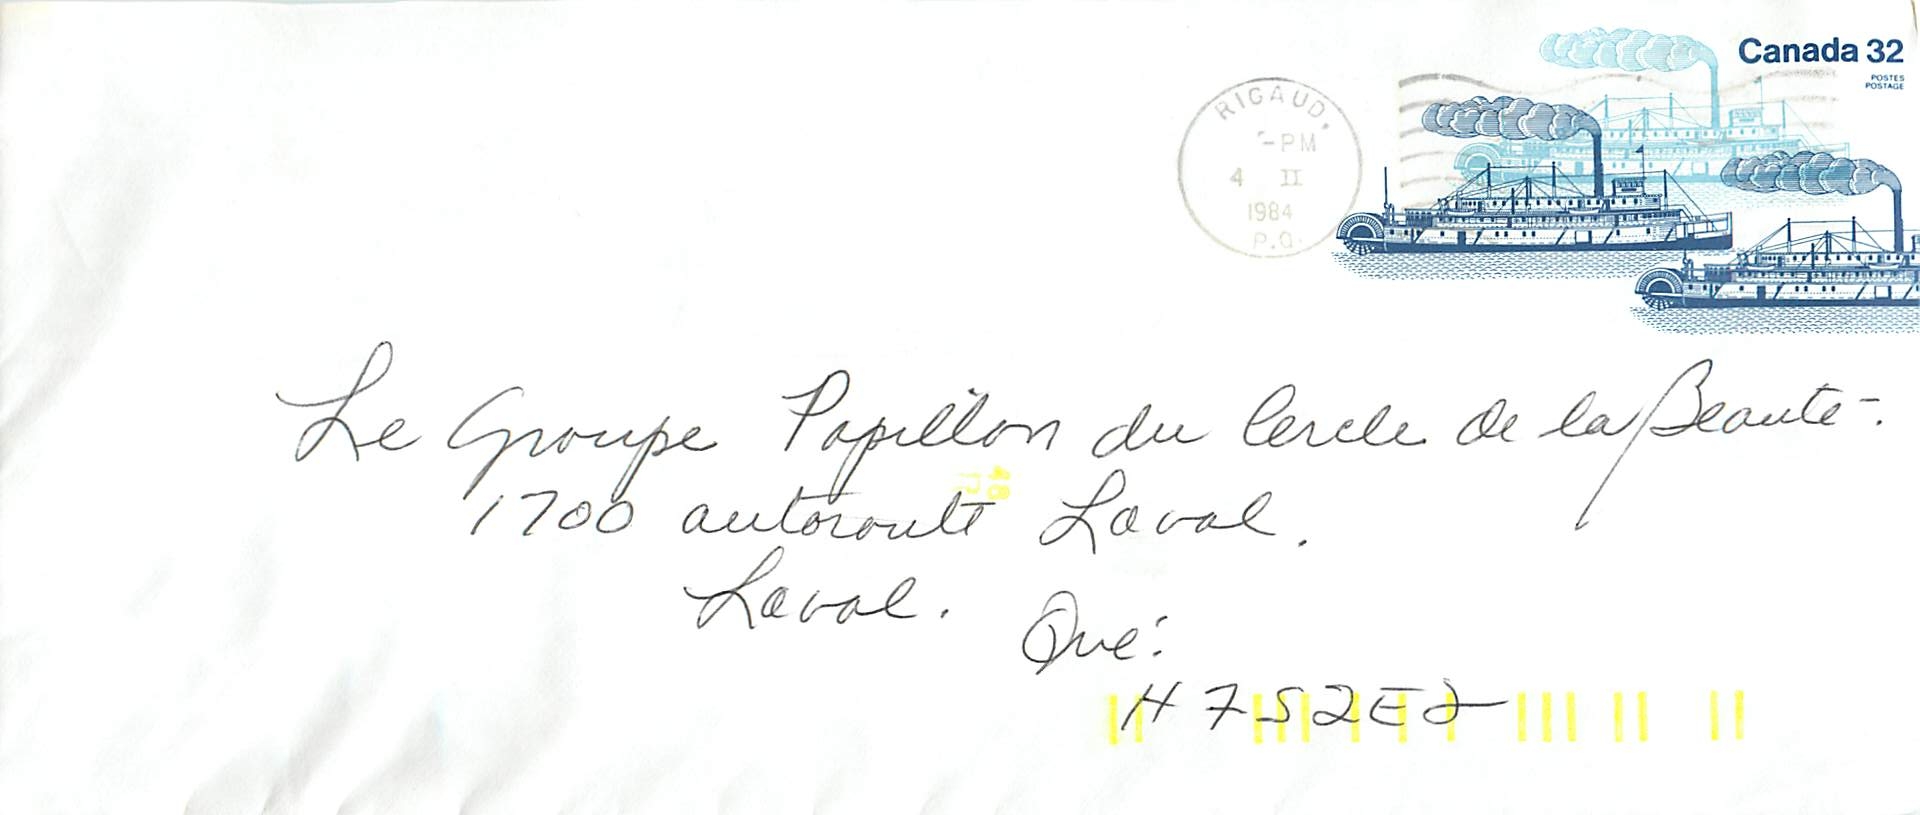 Canada 32
POSTES
POSTAGE
RIGAUD.
-PM
4 II
1984
P.Q.
Le Groupe Papillon du Cercle de la Beauté.
48
1700 autoroute Laval.
Laval. Qué.
H7S2E2